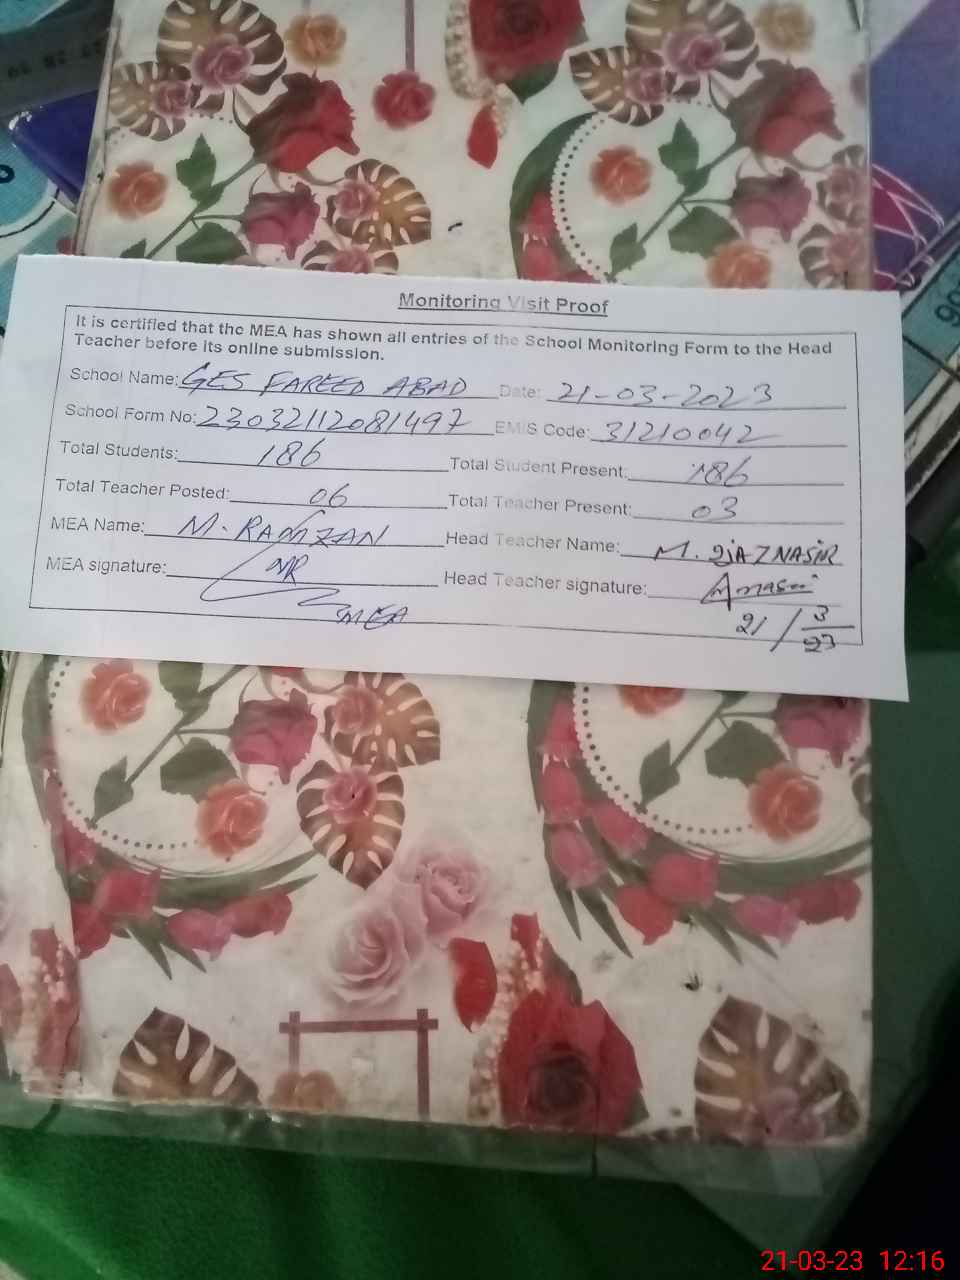 Monitoring Visit Proof
It is certified that the MEA has shown all entries of the School Monitoring Form to the Head
Teacher before its online submission.
School Name: GES FAREED ABAD Date: 21-03-2023
School Form No: 23032112081497 EMIS Code: 31210042
Total Students: 186 Total Student Present: 186
Total Teacher Posted: 06 Total Teacher Present: 03
MEA Name: M. RAMZAN Head Teacher Name: M. IJAZ NASIR
MEA signature: MR Head Teacher signature:
MEA 21/3/23
21-03-23 12:16